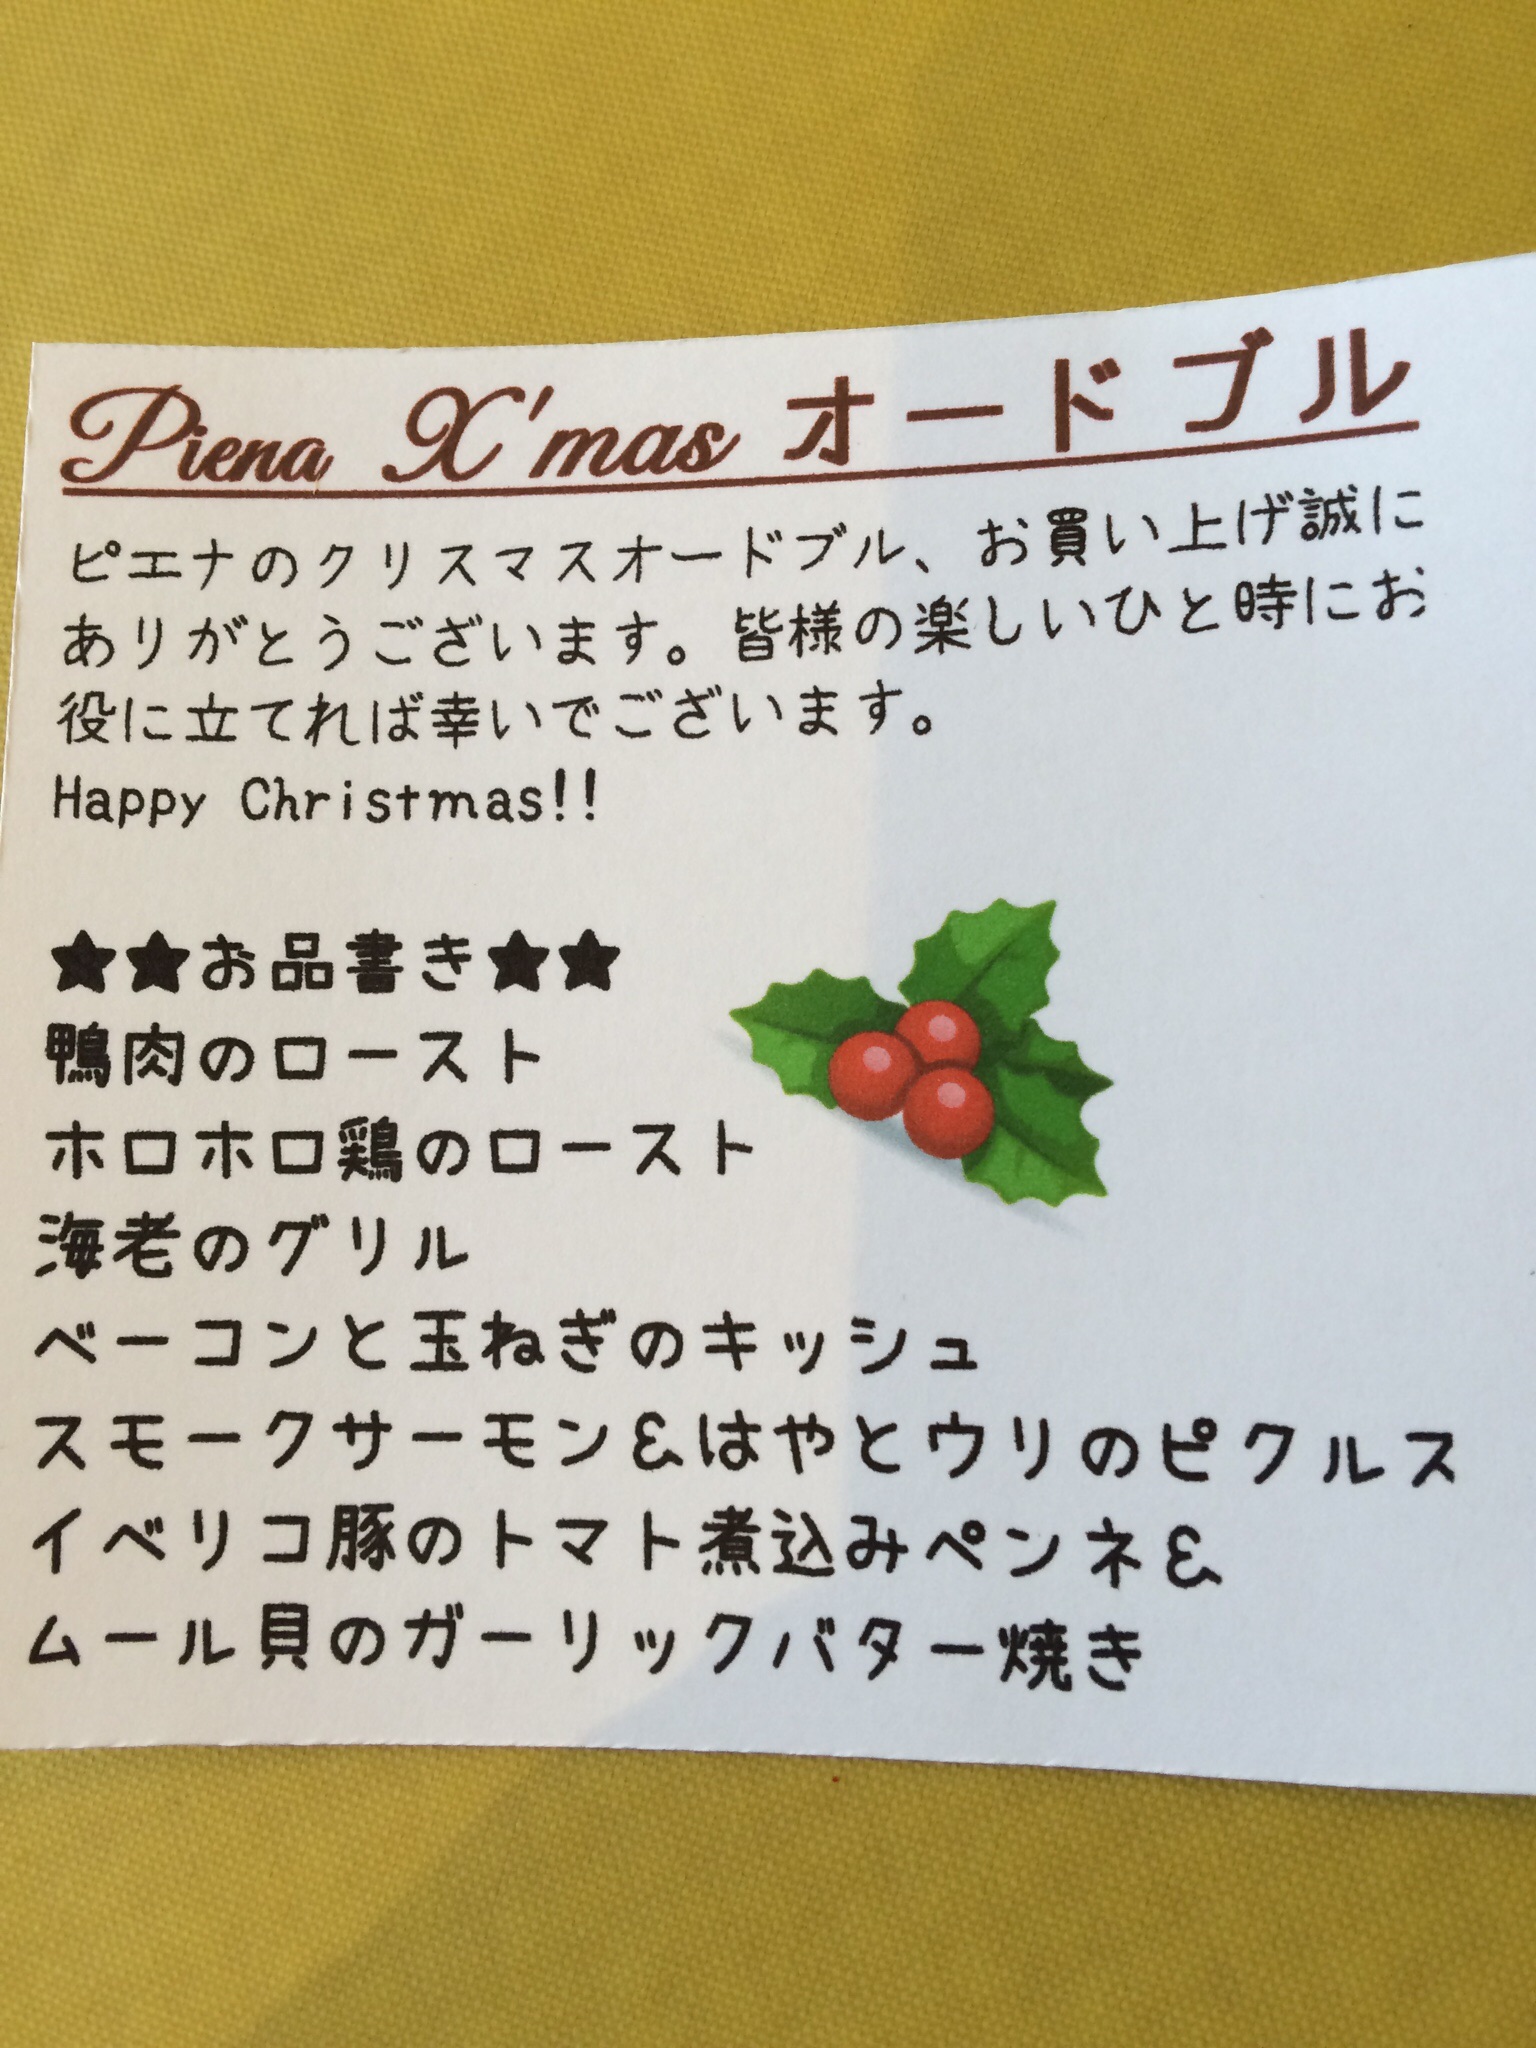 Piena X'mas オードブル
ピエナのクリスマスオードブル、お買い上げ誠に
ありがとうございます。皆様の楽しいひと時にお
役に立てれば幸いでございます。
Happy Christmas!!
★★お品書き★★
鴨肉のロースト
ホロホロ鶏のロースト
海老のグリル
ベーコンと玉ねぎのキッシュ
スモークサーモン&はやとウリのピクルス
イベリコ豚のトマト煮込みペンネ&
ムール貝のガーリックバター焼き